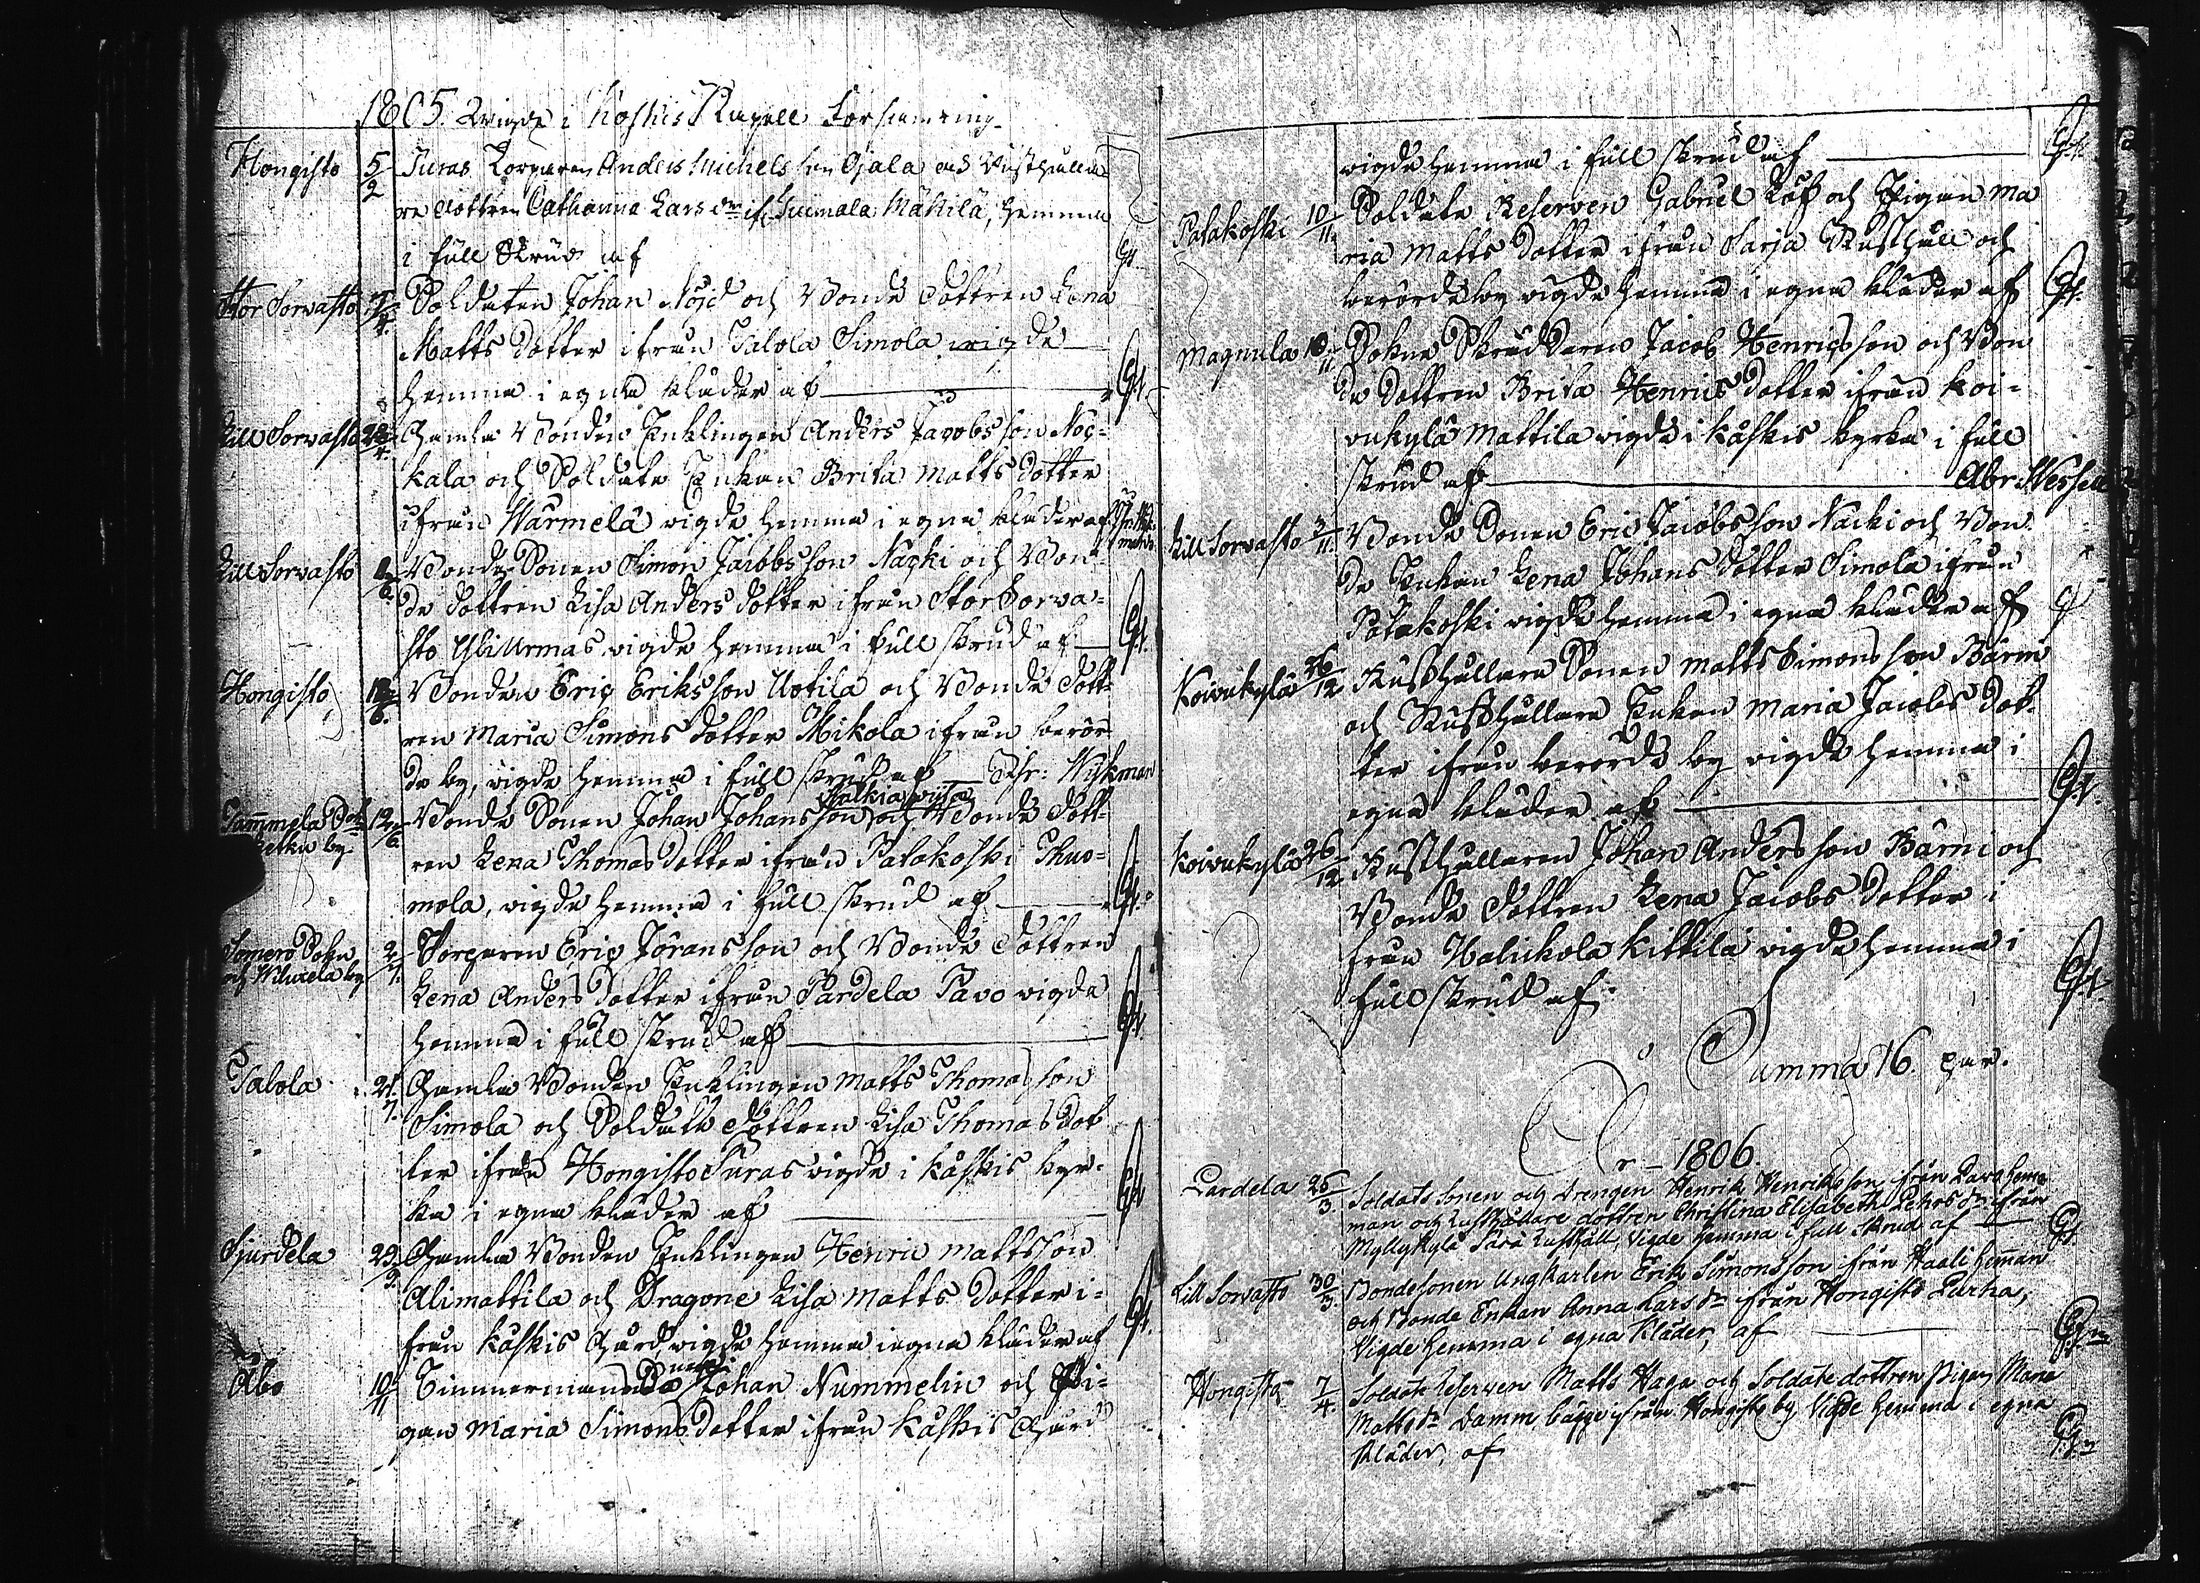 1805. Wigde i Koskis Kapell Församling
Hongisto 5/2 Juras Torparen Anders Michelsson Ojala och Rusthålla
re dottren Catharina Lars dr if. Suomala Mattila, hemma
i full skrud af Gt.
Stor Sorvasto /4. Soldaten Johan Nöjd och Bonde dottren Lena
Matts dotter ifrån Talola Simola wigde
hemma i egna kläder af Gt.
Lill Sorvasto /4. Gamla Bonden Enklingen Anders Jacobsson Noc-
kala och Soldate Enkan Brita Matts dotter
ifrån Wärmelä wigde hemma i egna kläder af
Lill Sorvasto /6. Bonde Sonen Simon Jacobsson Nacki och Bon-
de dottren Lisa Anders dotter ifrån Stor Sorva-
sto Yli Urmas, wigde hemma i full skrud af Gt.
Hongisto 12/6. Bonden Eric Eriksson Uotila och Bonde dott-
ren Maria Simons dotter Mikola ifrån berör-
de by, wigde hemma i full skrud af Nykman
Tammela Sok 12/6 Bonde Sonen Johan Johansson och Bonde dott-
by. ren Lena Thomas dotter ifrån Patakoski Thuo-
mola, wigde hemma i full skrud af Gt.
Somero Sokn 2/7. Torparen Eric Jöransson och Bonde dottren
och Wiluxela by Lena Anders dotter ifrån Pardela Pavo wigde
hemma i full skrud af Gt.
Talola 21/7. Gamla Bonden Enklingen Matts Thomasson
Simola och Soldate dottren Lisa Thomas dot
ter ifrån Hongisto Juras wigde i Koskis kyr-
ka i egna kläder af Gt.
Sjurdela Gamla Bonden Enklingen Henric Mattsson
Alimattila och Dragone Lisa Matts dotter i-
från Koskis Gård, wigde hemma i egna kläder af Gt.
Åbo 10/11 Timmermannen Johan Nummelin och Pi-
gan Maria Simons dotter ifrån Koskis Gård
wigde hemma i full skrud af Gt.
Patakoski 10/11. Soldate Reserven Gabriel Löf och Pigan Ma
ria Matts dotter ifrån Sarja Rusthåll och
berörde by wigde hemma i egna kläder af Gt.
Magnula 10/11 Sokne Skräddaren Jacob Henricsson och Bon
de dottren Brita Henrics dotter ifrån Koi-
vukylä Mattila wigde i Koskis kyrka i full
skrud af Abr. Wessell
Lill Sorvasto 3/11. Bonde Sonen Eric Jacobsson Nacki och Bon
de Enkan Lena Johans dotter Simola ifrån
Patakoski wigde hemma i egna kläder af Gt
Koivukylä 26/12 Rusthållare Sonen Matts Simonsson Bärni
och Rusthållare Enkan Maria Jacobs dot-
ter ifrån berörde by wigde hemma i
egna kläder af Gt.
Koivukylä 26/12 Rusthållaren Johan Andersson Bärni och
Bonde dottren Lena Jacobs dotter i
från Halikola Kittilä wigde hemma i
full skrud af. Gt.
Summa 16 par.
År 1806.
Pardela 25/3. Soldats Sonen och drengen Henrik Henriksson ifrån Pavo hem
man och Rusthållare dottren Christina Elisabeth Pehrs dr ifrån
Myllykylä Sarja Rusthåll, Vigde hemma i full skrud af Gt.
Lill Sorvasto 30/3. Bondesonen Ungkarlen Erik Simonsson från Haali hemman
och Bonde Enkan Anna Lars dr från Hongisto Purha,
Vigde hemma i egna kläder, af Gt.
Hongisto 7/4. Soldate Reserven Matts Haga och Soldate dottren Pigan Maria
Matts dr Damm bägge ifrån Hongisto by Vigde hemma i egna
kläder, af Gt.